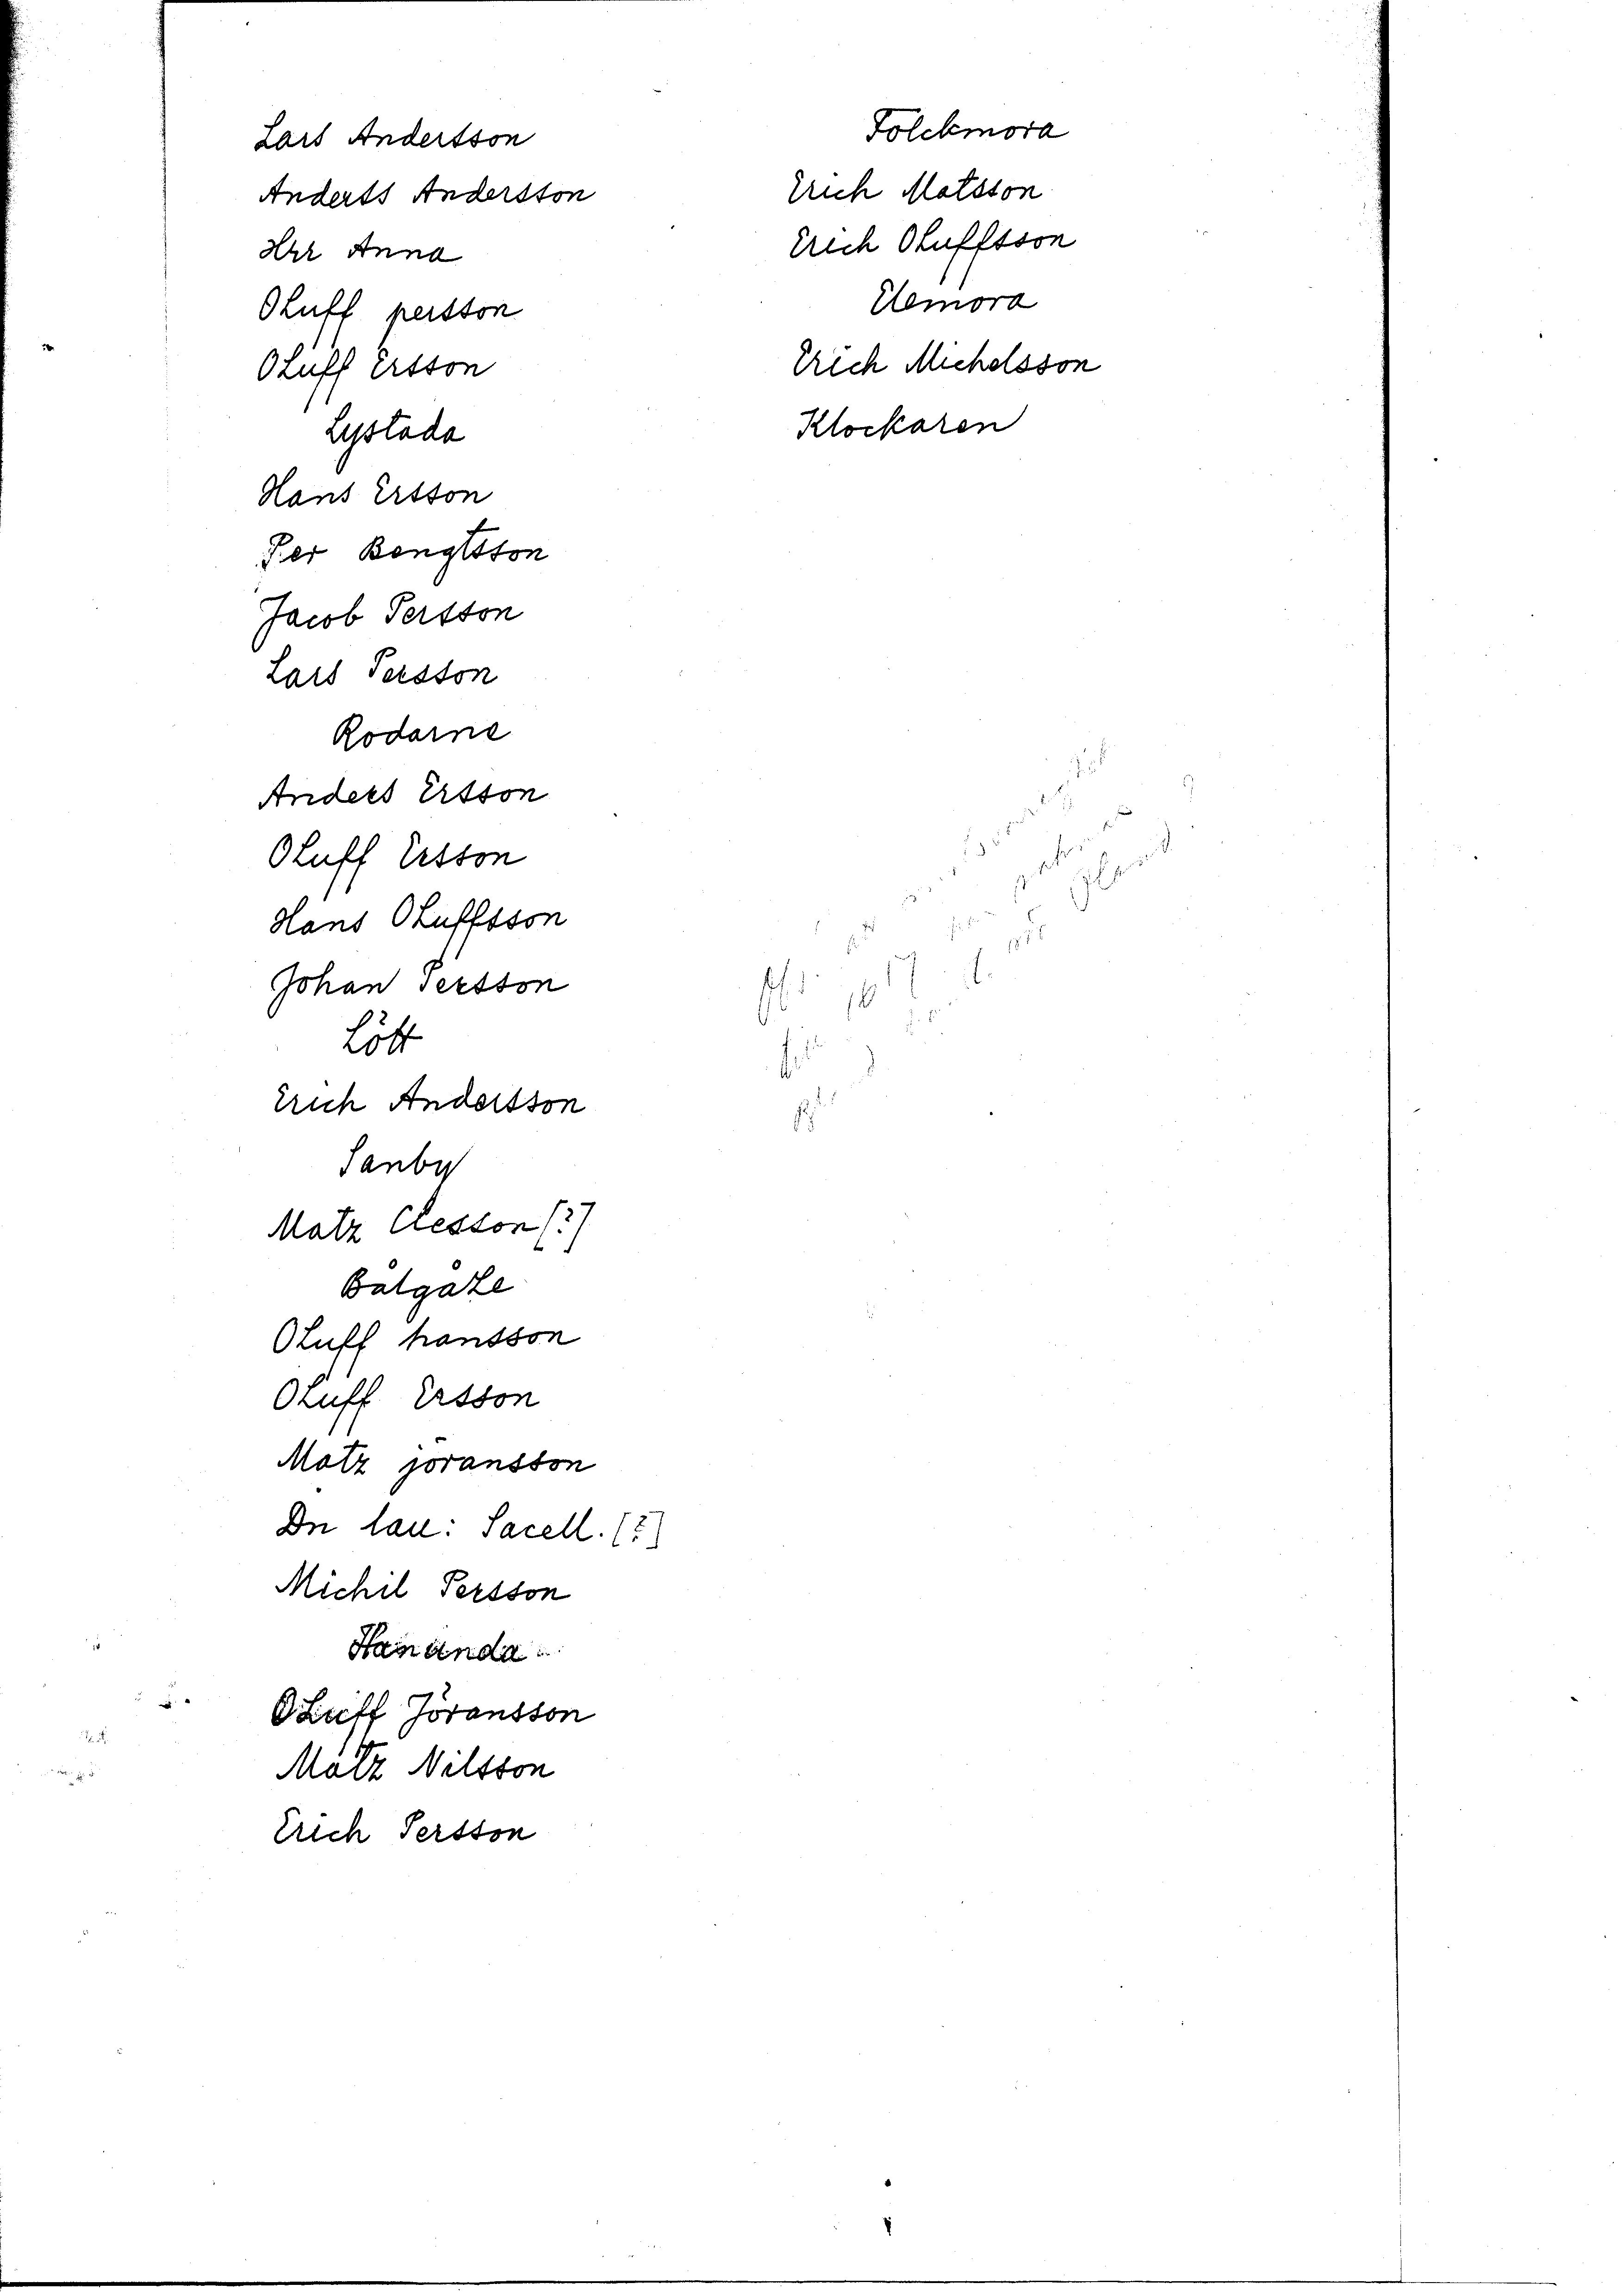 Lars Andersson
Anderss Andersson
Hr Anna
Oluff persson
Oluff Ersson
Lystada
Hans Ersson
Per Bengtsson
Jacob Persson
Lars Persson
Rodarne
Anders Ersson
Oluff Ersson
Hans Oluffsson
Johan Persson
Lött
Erich Andersson
Sanby
Matz Clesson [?]
Bålgåle
Oluff hansson
Oluff Ersson
Matz jöransson
Dn lau: Sacell. [?]
Michil Persson
Hananda
Oluff Jöransson
Matz Nilsson
Erich Persson
Folckmora
Erich Matsson
Erich Oluffsson
Elemora
Erich Michelsson
Klockaren